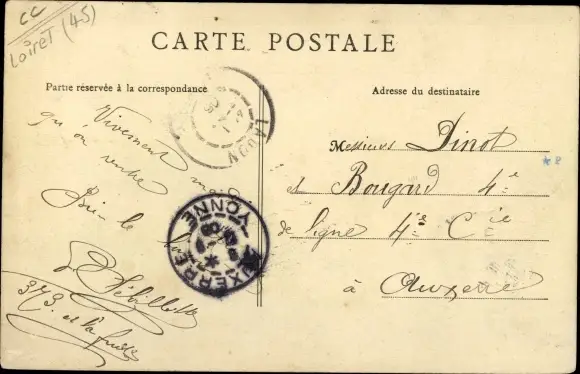 CC
Loiret (45)
CARTE POSTALE
Partie réservée à la correspondance
Adresse du destinataire
Vivement
qu'on rentre
le
373. et la fuite
LADON
AUXERRE
YONNE
Messieurs Dinot
et Bougard 4e
de ligne 4e Cie
à Auxerre